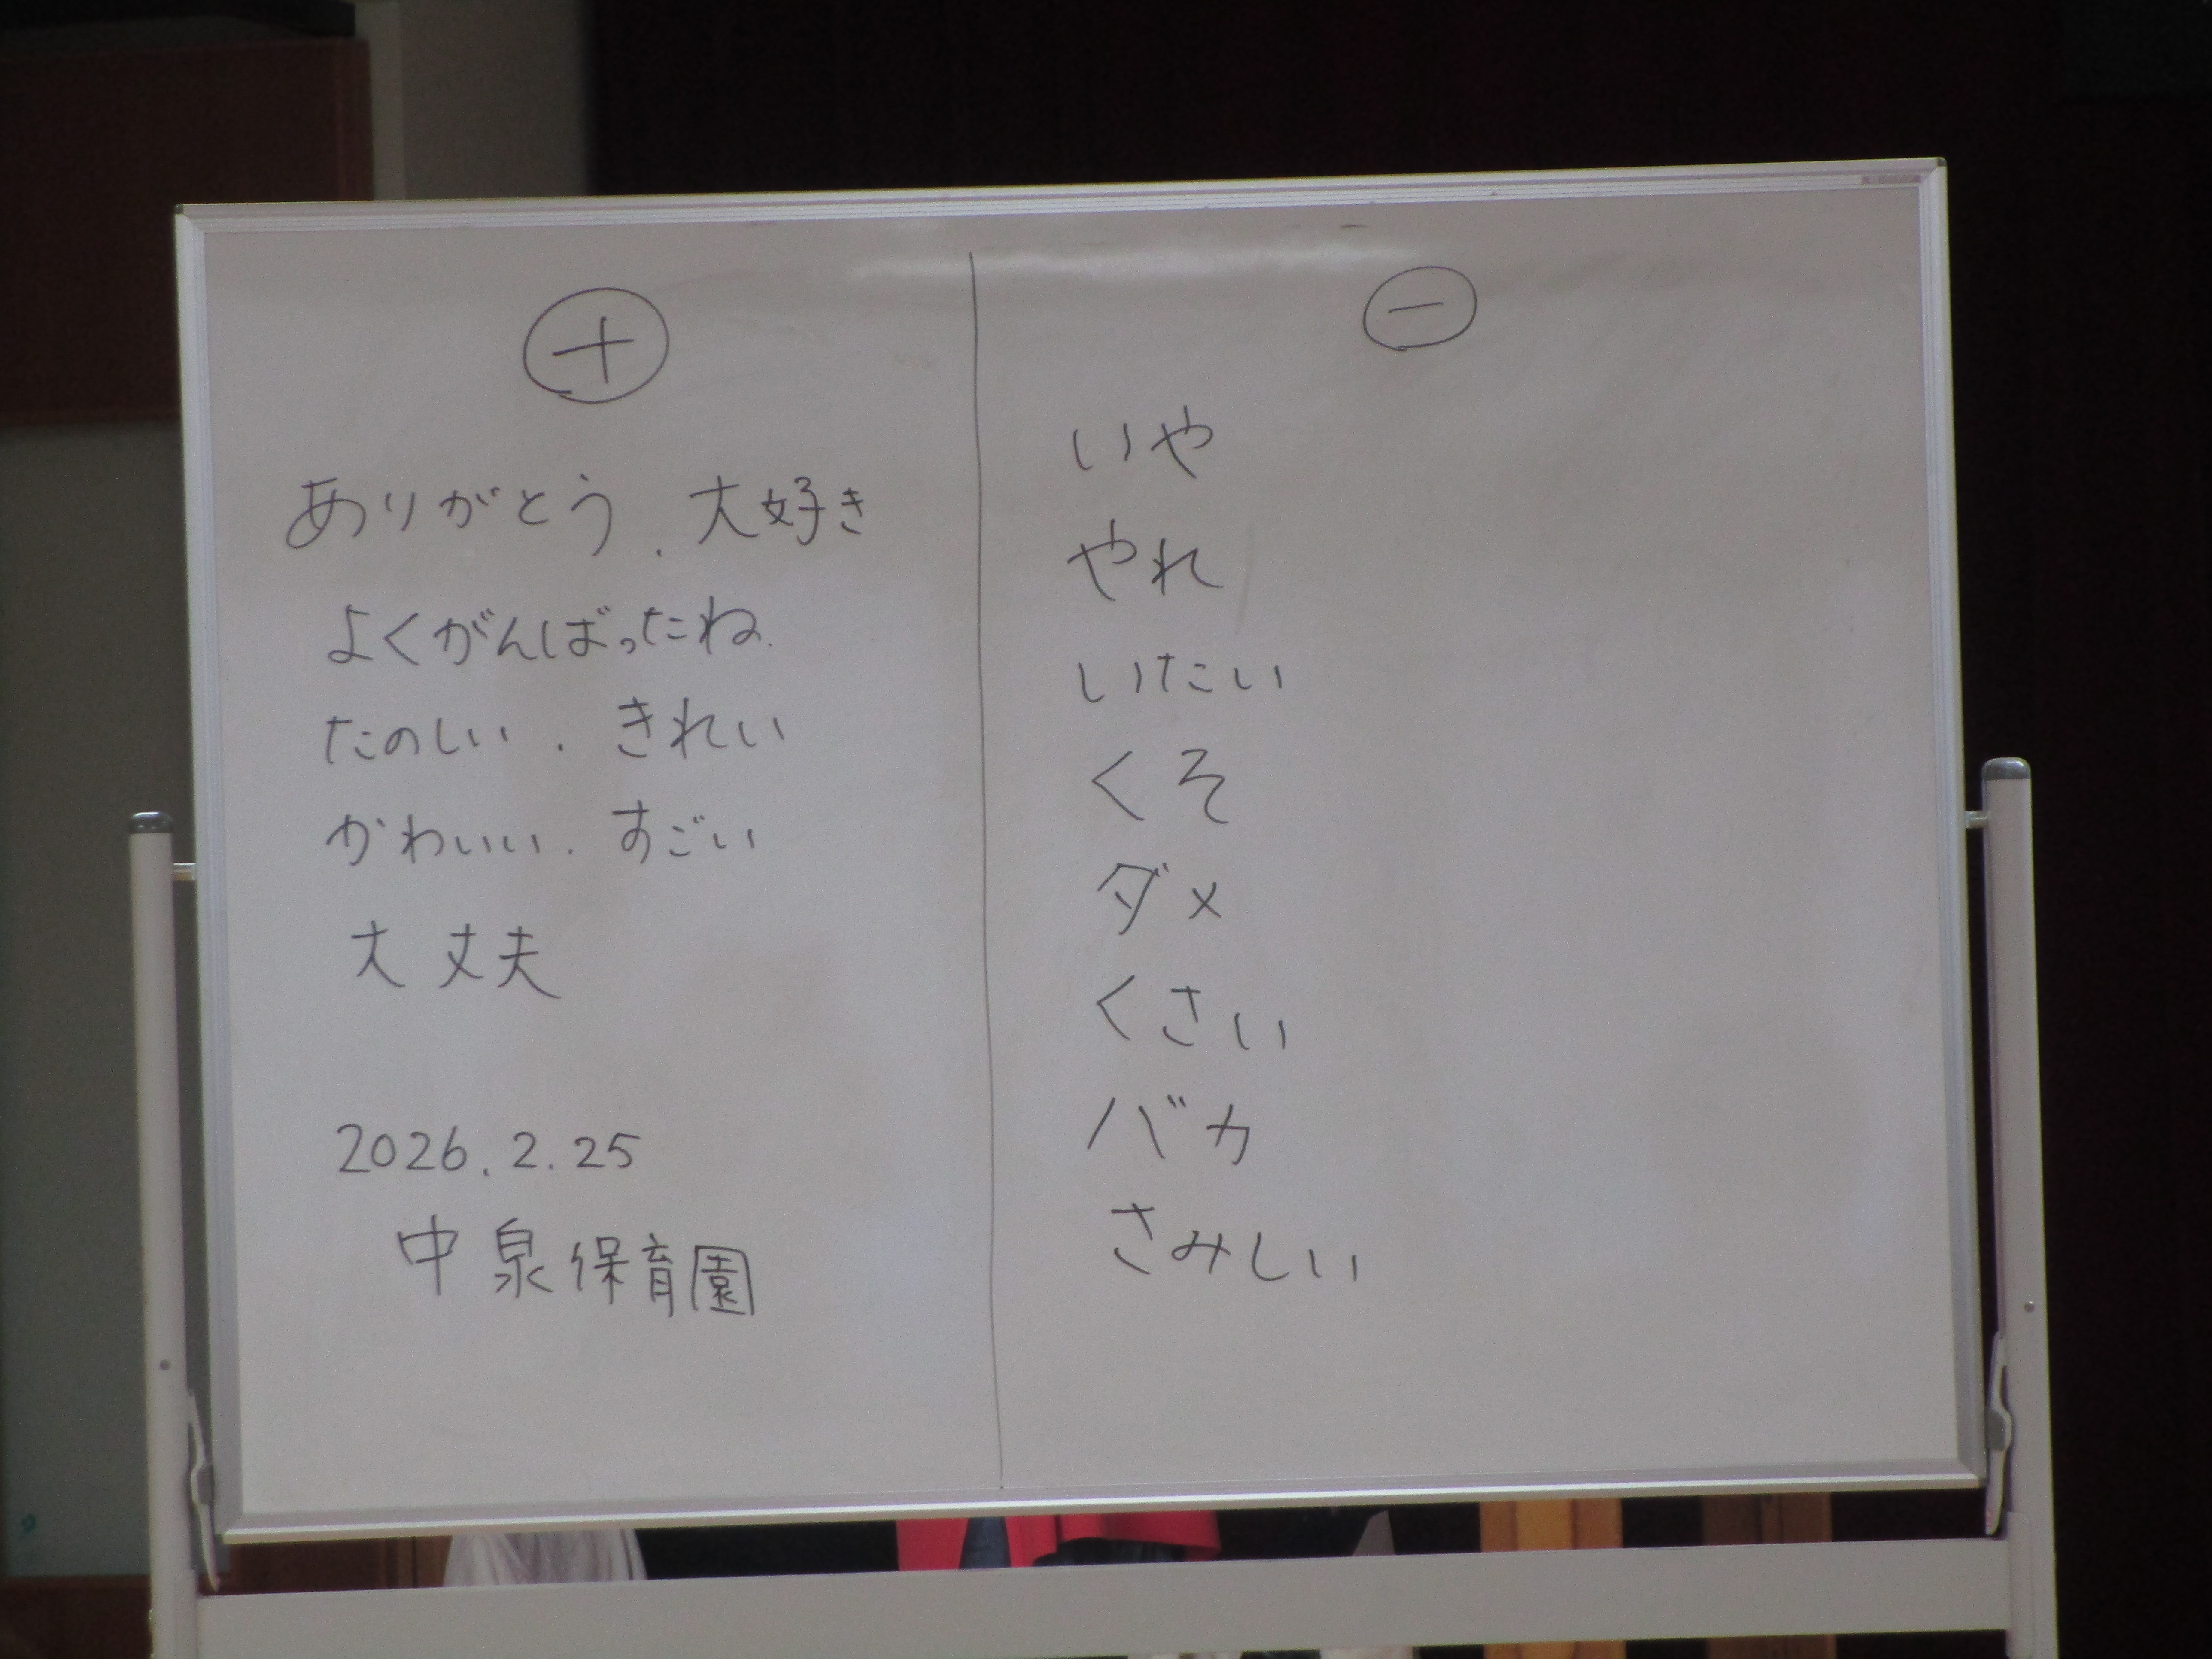 ⊕
ありがとう．大好き
よくがんばったね．
たのしい．きれい
かわいい．すごい
大丈夫
2026.2.25
中泉保育園
⊖
いや
やれ
いたい
くそ
ダメ
くさい
バカ
さみしい